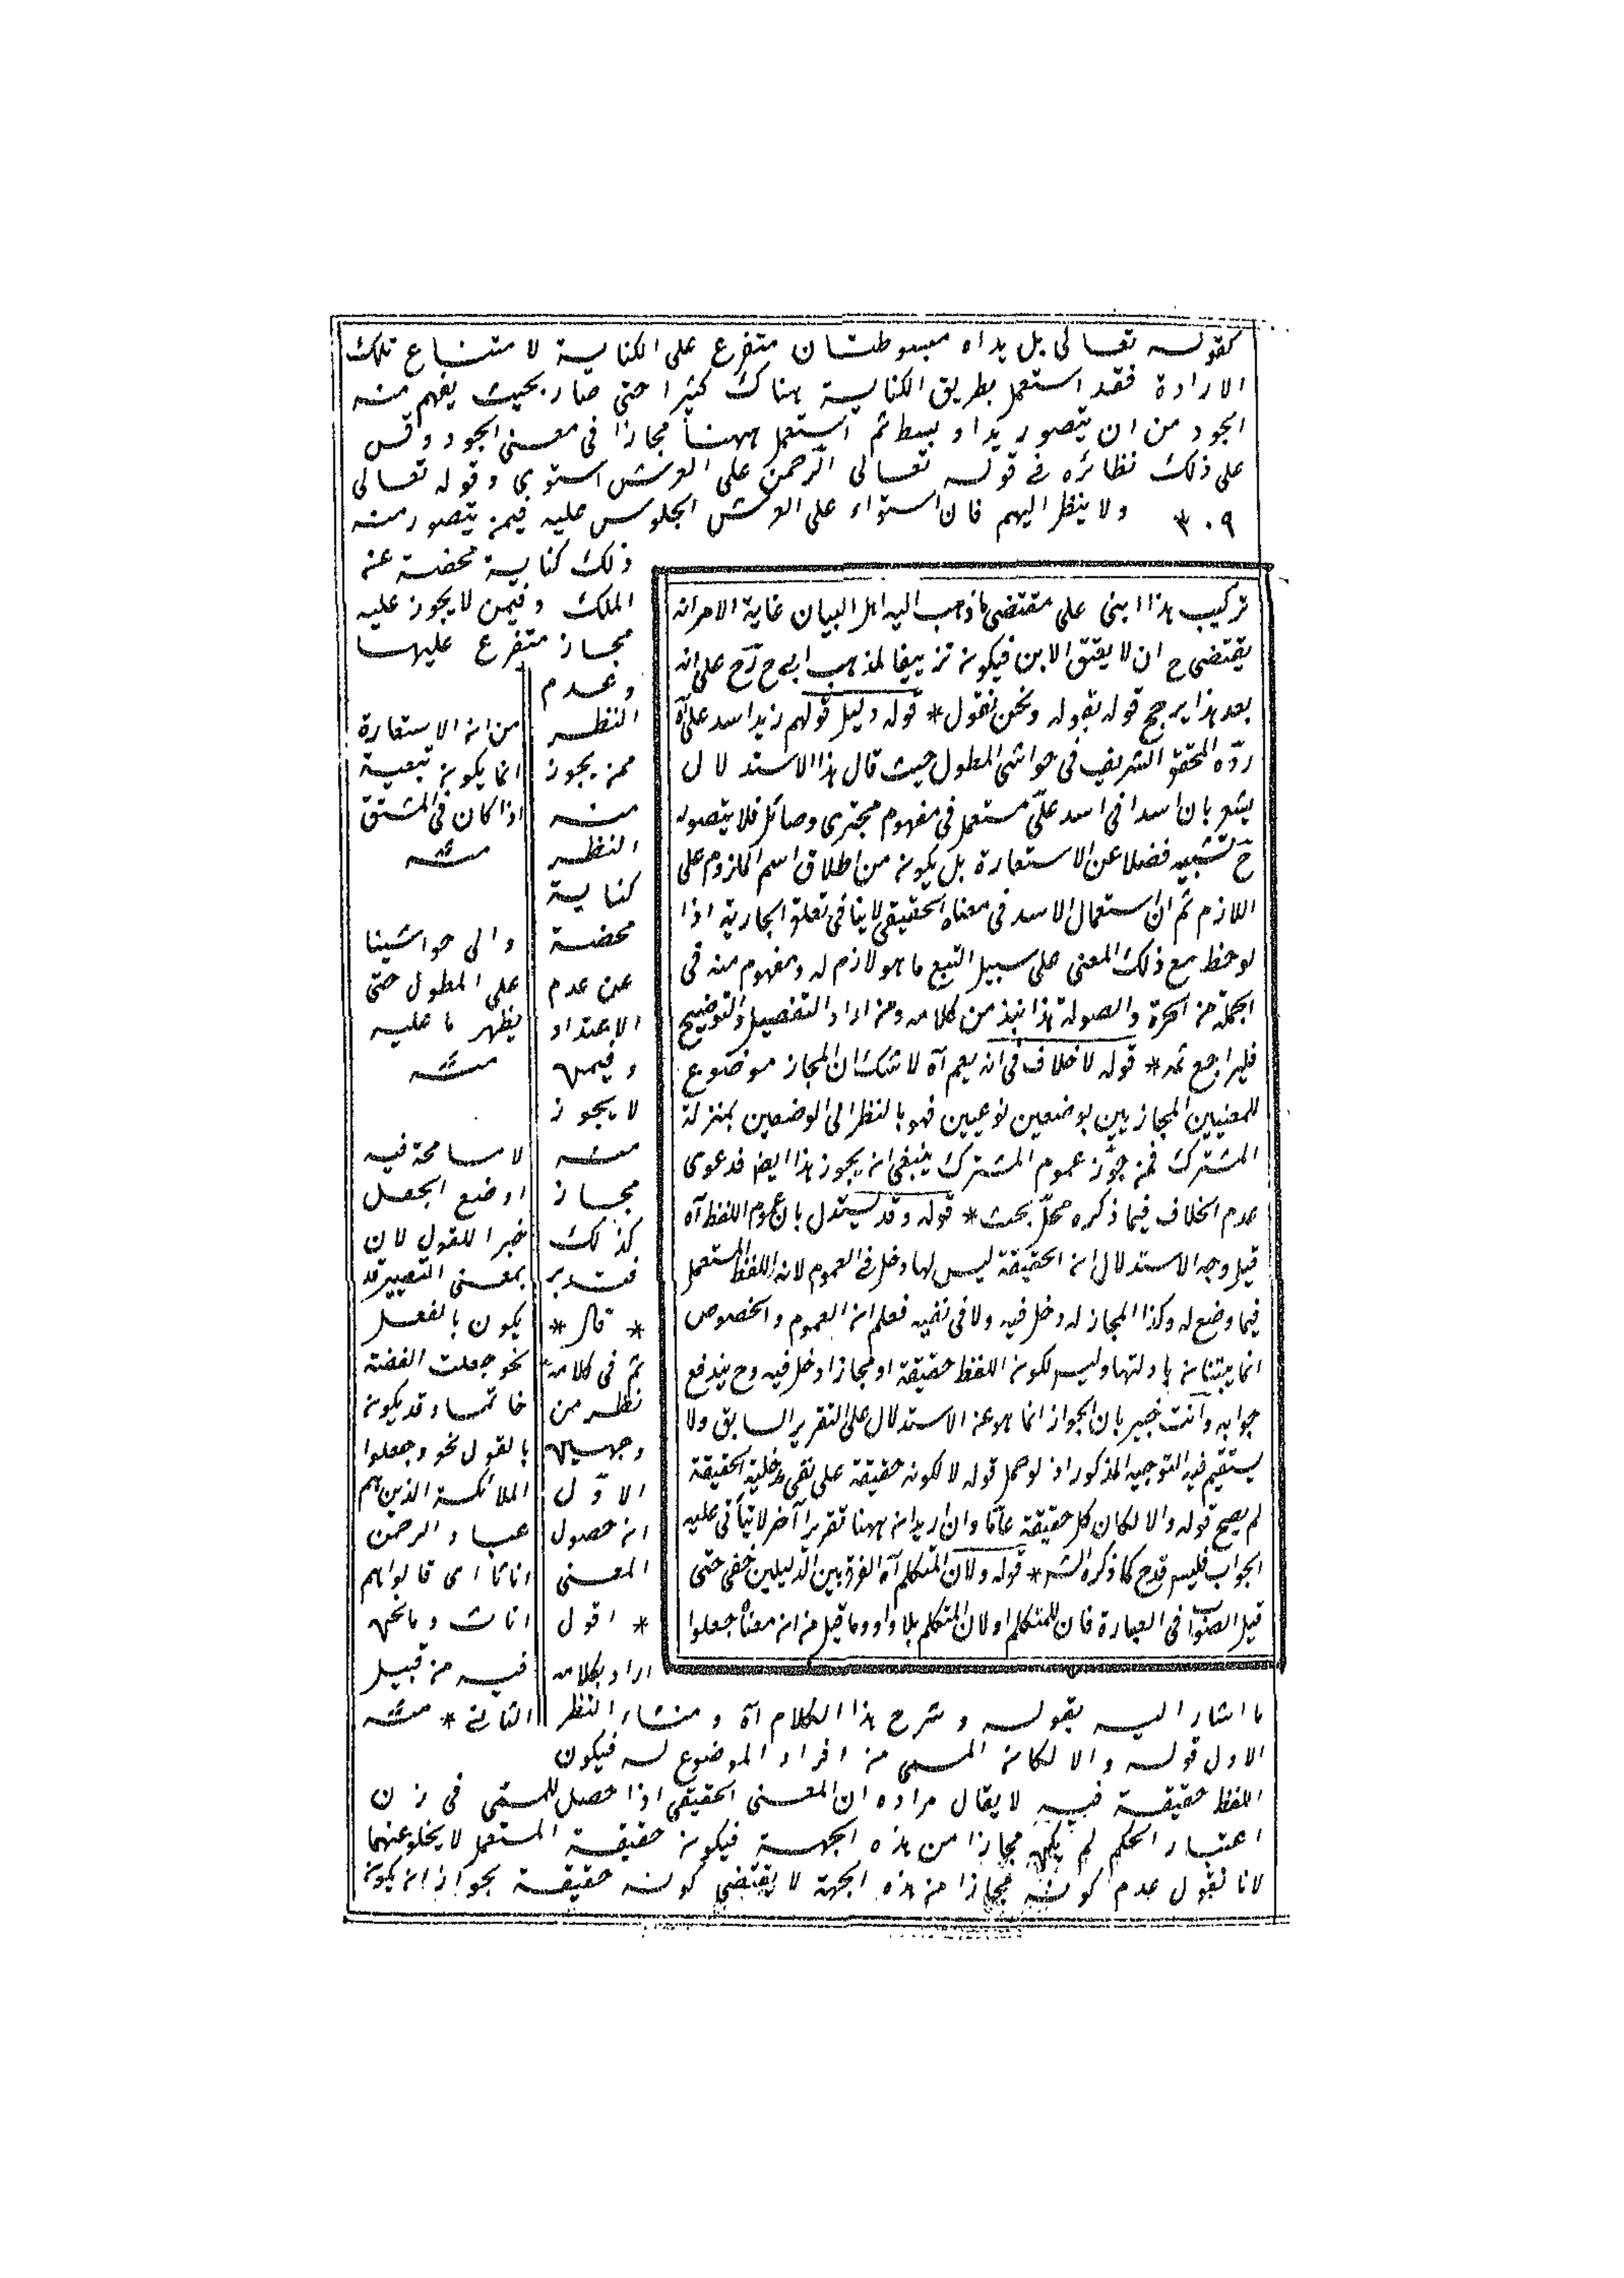 كقوله تعالى بل يداه مبسوطتان متفرع على الكناية لا متناع تلك
الارادة فقد استعمل بطريق الكناية هناك كثيرا حتى صار بحيث يفهم منه
الجود من ان يتصور يدا و بسط ثم استعمل ههنا مجازا في معنى الجود وقس
على ذلك نظائره في قوله تعالى الرحمن على العرش استوى وقوله تعالى
٣٠٩ ولا ينظر اليهم فان استواء على العرش الجلوس عليه فيمن يتصور منه
ذلك كناية محضة عن
الملك وفيمن لا يجوز عليه
مجاز متفرع عليها
وعدم
النظر
ممن يجوز
منه
النظر
كناية
محضة
عن عدم
الاعتداد
وفيمن
لا يجوز
منه
مجاز
كذلك
فتدبر
* قال *
ثم في كلامه
نظر من
وجهين
الاول
ان حصول
المعنى
* اقول
اراد بكلامه
ما اشار اليه بقوله وشرح هذا الكلام آه ومنشاء النظر
الاول قوله والا لكان المسمى من افراد الموضوع له فيكون
اللفظ حقيقة فيه لا يقال مراده ان المعنى الحقيقي اذا حصل للمسمى في زمان
اعتبار الحكم لم يكن مجازا من هذه الجهة فيكون حقيقة المستعمل لا يخلو عنهما
لانا نقول عدم كونه مجازا من هذه الجهة لا يقتضي كونه حقيقة بجواز ان يكون
تركيب هذا ابنى على مقتضى ما ذهب اليه اهل البيان غاية الامر انه
يقتضي ح ان لا يعتق الابن فيكون تزييفا لمذهب ابي ح رح على انه
بعد هذا يرجح قوله بقوله ونحن نقول * قوله دليل قولهم زيد اسد على آه
رده المحقق الشريف في حواشي المطول حيث قال هذا الاستدلال
يشعر بان اسدا في اسد على مستعمل في مفهوم مجترى وصائل فلا يتصور
ح تشبيه فضلا عن الاستعارة بل يكون من اطلاق اسم الملزوم على
اللازم ثم ان استعمال الاسد في معناه الحقيقي لا ينافي تعلق الجار به اذا
لوحظ مع ذلك المعنى على سبيل التبع ما هو لازم له ومفهوم منه في
الجملة من الجرأة والصولة هذا نبذ من كلامه ومن اراد التفصيل والتوضيح
فليراجع ثمه * قوله لا خلاف في انه يعم آه لا شك ان المجاز موضوع
للمعنيين المجازيين بوضعين نوعيين فهو بالنظر الى الوضعين بمنزلة
المشترك فمن جوز عموم المشترك ينبغي ان يجوز هذا ايضا فدعوى
عدم الخلاف فيما ذكره محل بحث * قوله وقد يستدل بان عموم اللفظ آه
قيل وجه الاستدلال ان الحقيقة ليس لها دخل في العموم لانه اللفظ المستعمل
فيما وضع له وكذا المجاز له دخل فيه ولا في نفيه فعلم ان العموم والخصوص
انما يبتنيان بادلتها وليس لكون اللفظ حقيقة او مجازا دخل فيه وح يندفع
جوابه وانت خبير بان الجواز انما هو عن الاستدلال على التقرير السابق ولا
يستقيم فيه التوجيه المذكور اذ لو حمل قوله لا لكونه حقيقة على نفي دخلية الحقيقة
لم يصح قوله والا لكان كل حقيقة عاما وان اريد ان ههنا تقريرا آخر لا يتأتى عليه
الجواب فليس قدح كما ذكره الشه * قوله ولان المتكلم آه الفرق بين الدليلين خفي حتى
قيل الصواب في العبارة فان للمتكلم او لان المتكلم بلا واو وما قيل من ان معناه جعلوا
من ان الاستعارة
انما يكون تبعية
اذا كان في المشتق
منه
والى حواشينا
على المطول حتى
يظهر ما عليه
منه
لا مسامحة فيه
اوضع الجعل
خبرا للقول لان
بمعنى التصيير قد
يكون بالفعل
نحو جعلت الفضة
خاتما وقد يكون
بالقول نحو وجعلوا
الملائكة الذين هم
عباد الرحمن
اناثا اى قالوا هم
اناث وما نحن
فيه من قبيل
الثاني * منه